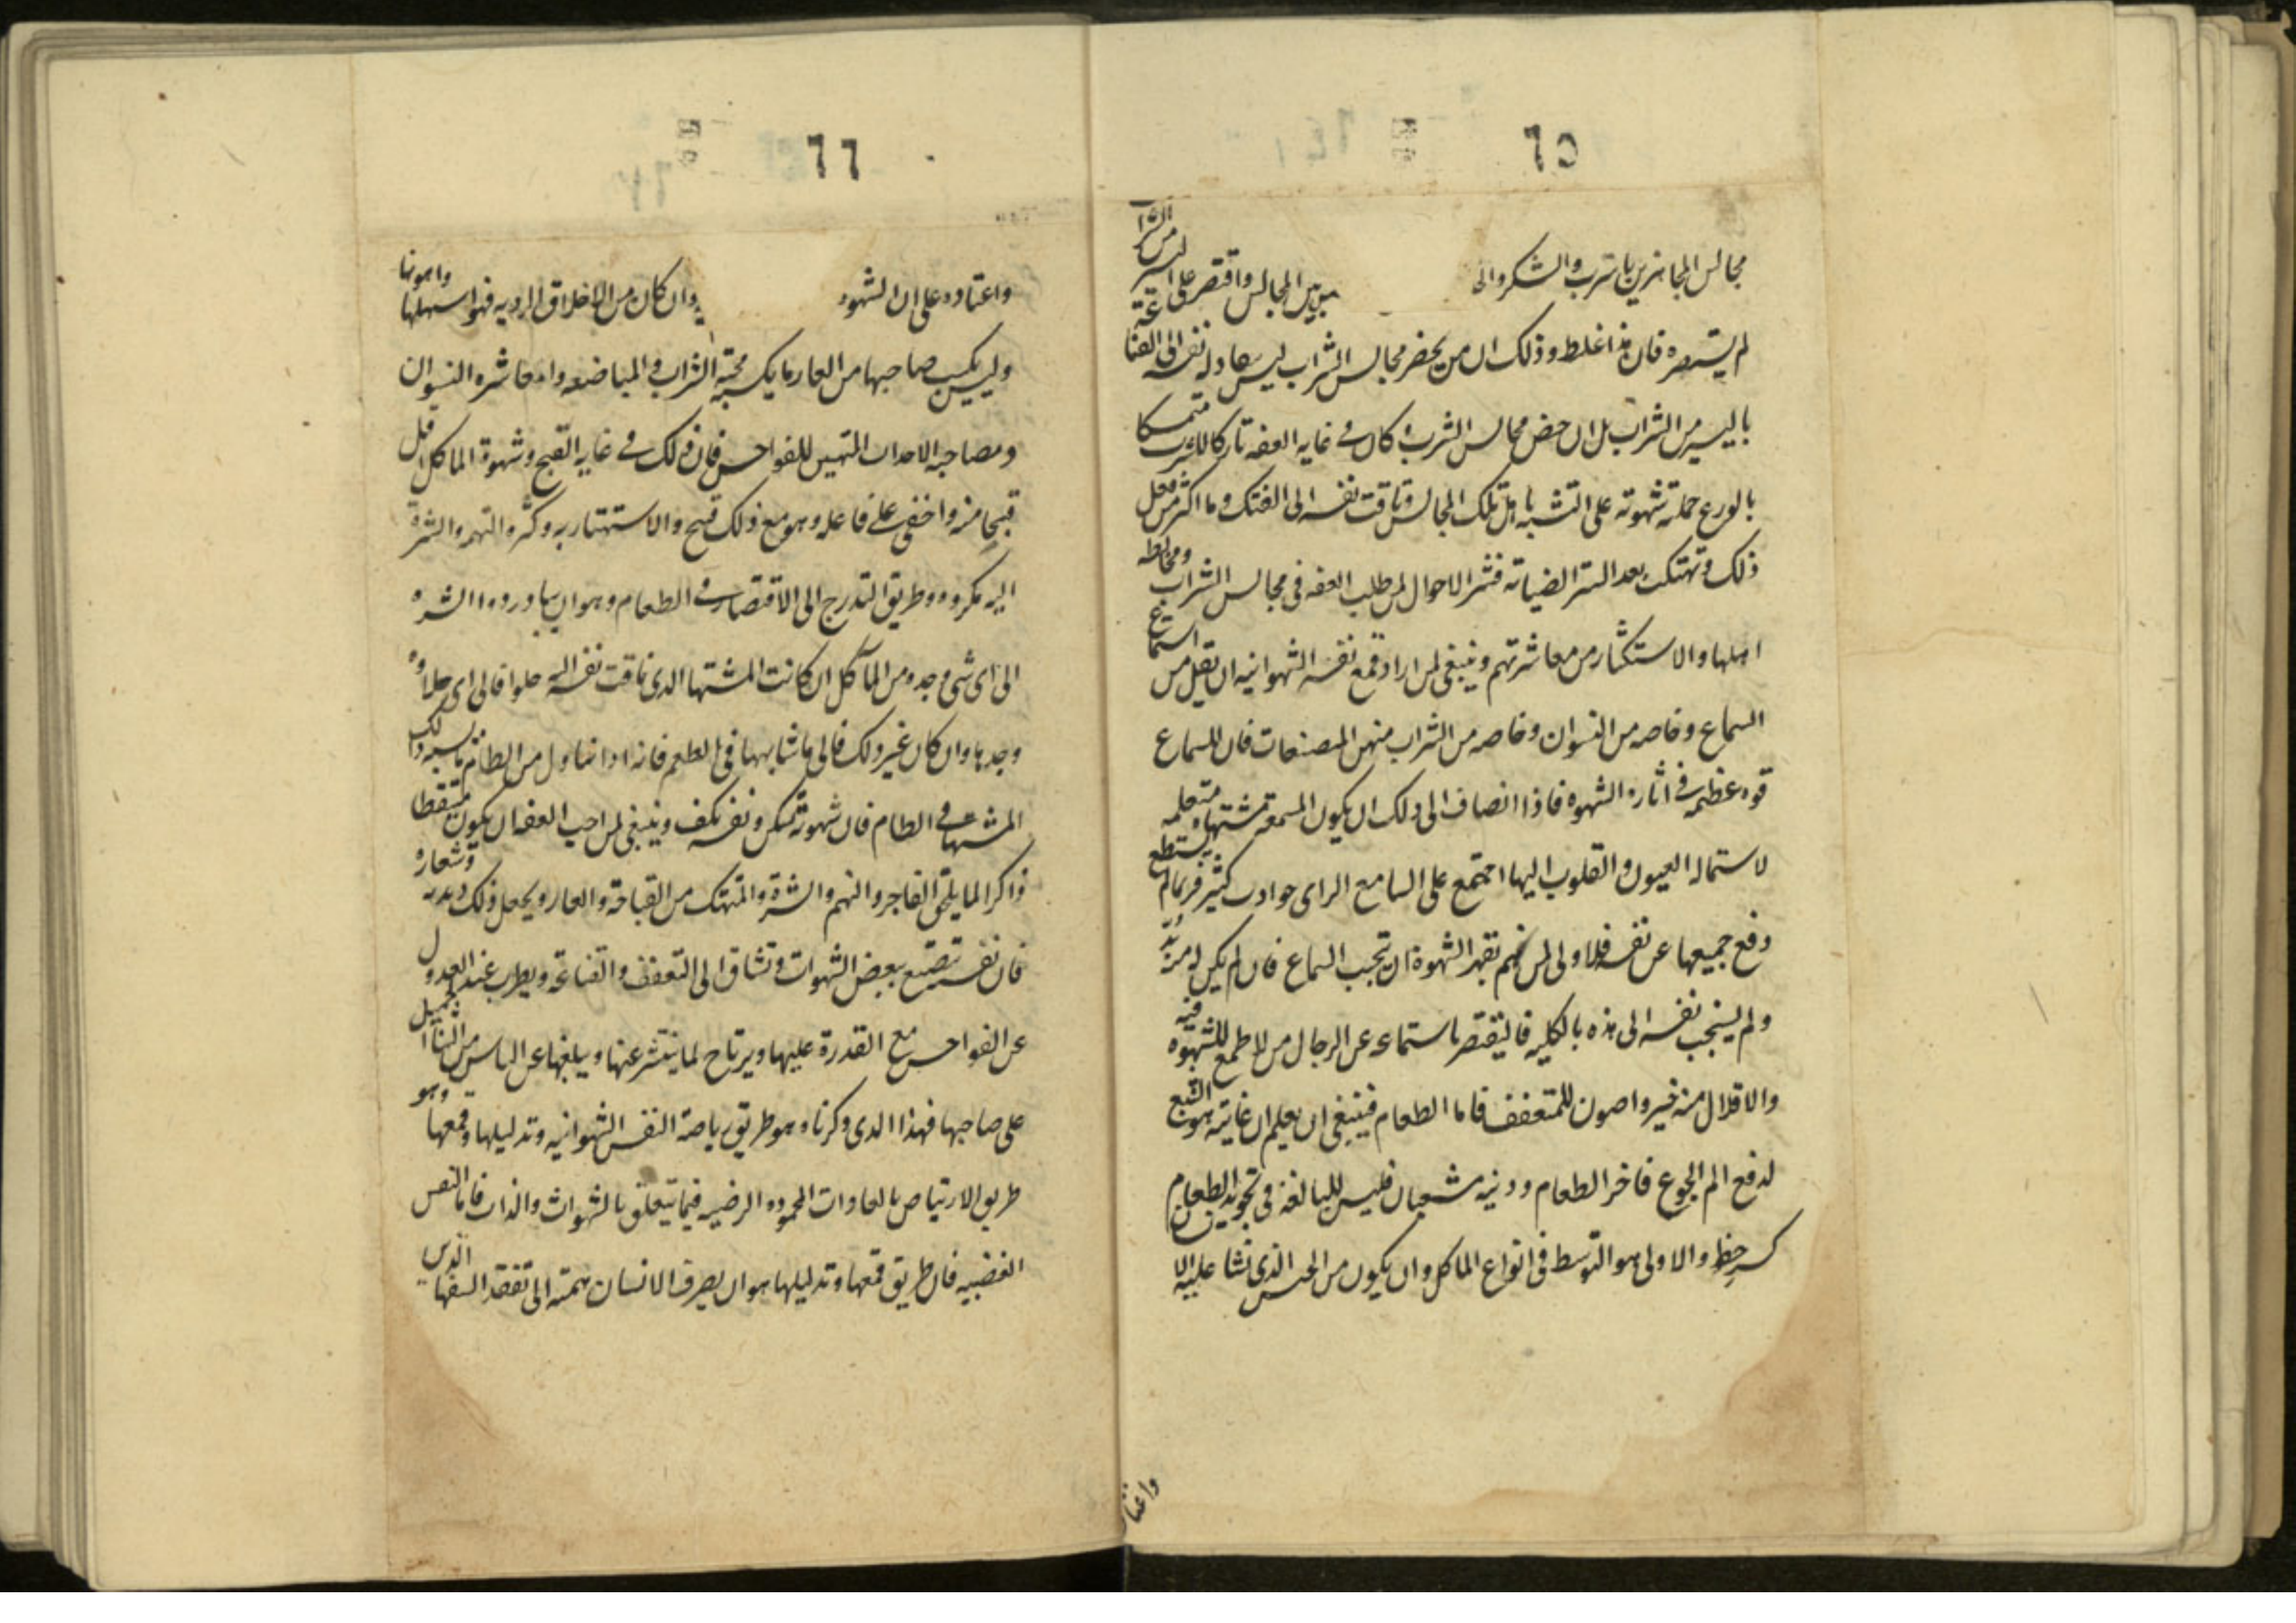 ٦٥
مجالس المجاهرين بالشرب والسكر والى بين المجالس واقتصر على اليسير من الشراب
لم يستضره فان هذا غلط وذلك ان من يحضر مجالس الشراب ليس تنقاد له نفسه الى القناعة
باليسير من الشراب بل ان حضر مجالس الشرب وكان فى غايه العفه تاركا للشرب متمسكا
بالورع حملته شهوته على التشبه باهل تلك المجالس وتاقت نفسه الى الفتك وما اكثر من فعل
ذلك وتهتك بعد الستر الصيانه فشر الاحوال لمن طلب العفه فى مجالس الشراب ومخالطه
اهلها والاستكثار من معاشرتهم وينبغى لمن اراد قمع نفسه الشهوانيه ان يقل من استماع
السماع وخاصه من النسوان وخاصه من الشراب منهن المصنعات فان للسماع
قوه عظيمه فى اثاره الشهوه فاذا انضاف الى ذلك ان يكون المسمعة مشتهاه متعلمه
لاستماله العيون والقلوب اليها اجتمع على السامع الراى حوادث كثير فربما لم يستطع
دفع جميعها عن نفسه فالاولى لمن هم بقهر الشهوة ان يتجنب السماع فان لم يكن له منه بد
ولم يستجب نفسه الى هذه بالكليه فاليقتصر باستماعه عن الرجال من لا طمع للشهوة فيه
والاقلال منه خير واصون للمتعفف فاما الطعام فينبغى ان يعلم ان غايته هو الشبع
لدفع الم الجوع فاخر الطعام ودنيه مشبعان فليس للمبالغة فى تجويد الطعام
كبير حظ والاولى هو التوسط فى انواع الماكل وان يكون من الجنس الذى نشا عليه الا
واعتا
٦٦
واعتاده على ان الشهوه وان كان من الاخلاق الرديه فهو اسهلها واهونها
وليس يكسب صاحبها من العار ما يكسبه محبة الشراب والمباضعه وادمعاشره النسوان
ومصاحبه الاحداث المتهمين للفواحش فان ذلك فى غايه القبح وشهوة الماكل اقل
قبحا منه واخفى على فاعله وهو مع ذلك قبيح والاستهتار به وكثره النهم والشرة
اليه مكروه وطريق التدرج الى الاقتصار فى الطعام وهو ان يبادر ذو الشره
الى اى شى وجده من المآكل ان كانت المشتها الذى تاقت نفسه اليه حلوا فالى اى حلاوه
وجدها وان كان غير ذلك فالى ما شابهها فى الطعم فانه اذا تناول من الطعام ما يشبه ذلك
المشتها فى الطعام فان شهوته تسكن ونفسه تكف وينبغى لمن احب العفه ان يكون متيقظا
ذاكرا لما يلحق الفاجر والنهم والشرة والمتهتك من القباحة والعار ويجعل ذلك ديدنه وشعاره
فان نفسه تصنع ببعض الشهوات وتشاق الى التعفف والقناعة ويطرب عند العدول
عن الفواحش مع القدرة عليها ويرتاح لما ينتشر عنها ويبلغها عن الناس من الثنا الجميل
على صاحبها فهذا الذى ذكرناه وهو طريق رياضة النفس الشهوانيه وتذليلها وقمعها وهو
طريق الارتياض بالعادات المحموده الرضيه فيما يتعلق بالشهوات والذات فاما النفس
الغضبيه فان طريق قمعها وتذليلها هو ان يصرف الانسان همته الى تفقد السفها الذين